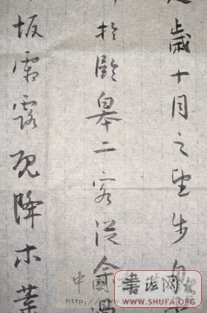 歲十月之望步自
於臨皋二客從
坂霜露既降木葉
中國書法网
WWW.SHUFA.ORG